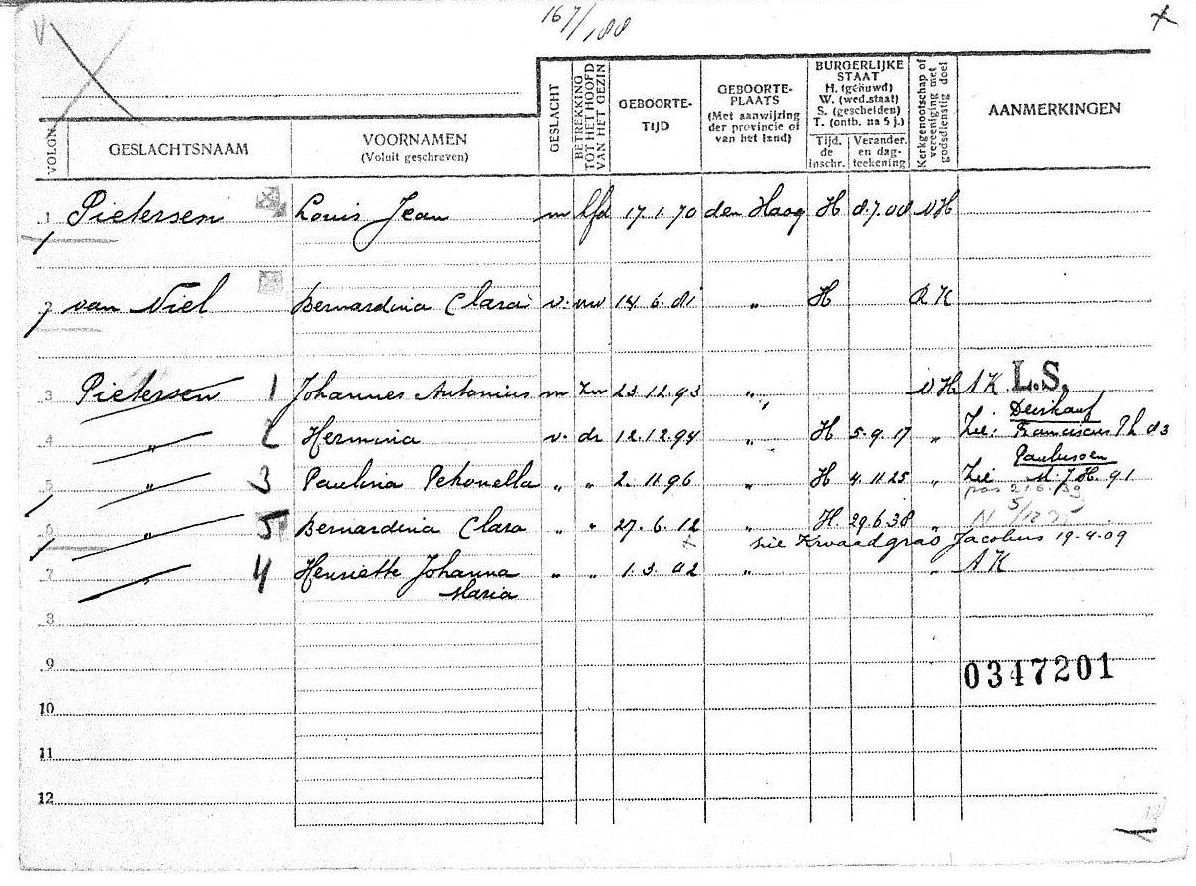 167/188
VOLGN.
GESLACHTSNAAM
VOORNAMEN
(Voluit geschreven)
GESLACHT
BETREKKING
TOT HET HOOFD
VAN HET GEZIN
GEBOORTE-
TIJD
GEBOORTE-
PLAATS
(Met aanwijzing
der provincie of
van het land)
BURGERLIJKE
STAAT
H. (gehuwd)
W. (wed.staat)
S. (gescheiden)
T. (ontb. na 5 j.)
Tijd.
de
inschr.
Verander.
en dag-
teekening
Kerkgenootschap of
vereeniging met
godsdienstig doel
AANMERKINGEN
1 Pietersen Louis Jean m hfd 17.1.70 den Haag H 8.7.08 NH
2 van Niel Bernardina Clara v. vw 14 6 81 " H RK
3 Pietersen 1 Johannes Antonius m zn 23 12.93 " NH AK L.S.
4 " 2 Hermina v. dr 12.12.94 " H 5.9.17 " Zie: Franciscus Ph 83
5 " 3 Paulina Petronella " " 2.11.96 " H 4.11.25 " Zie Paulussen M.J.H. 91
6 " 5 Bernardina Clara " " 27.6.12 " H 29.6.38 "
zie Kwaadgras Jacobus 19.4.09
7 " 4 Henriette Johanna " " 1.3.02 " " AK
Maria
8
9
0347201
10
11
12